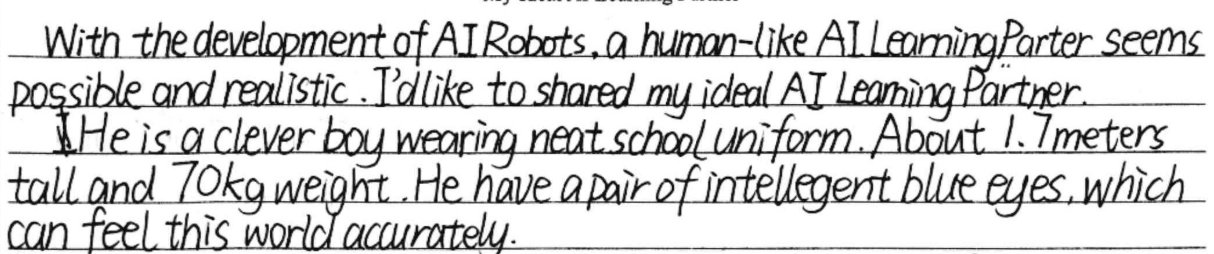 With the development of AI Robots, a human-like AI Learning Parter seems
possible and realistic. I'd like to shared my ideal AI Learning Partner.
He is a clever boy wearing neat school uniform. About 1.7meters
tall and 70kg weight. He have a pair of intellegent blue eyes, which
can feel this world accurately.